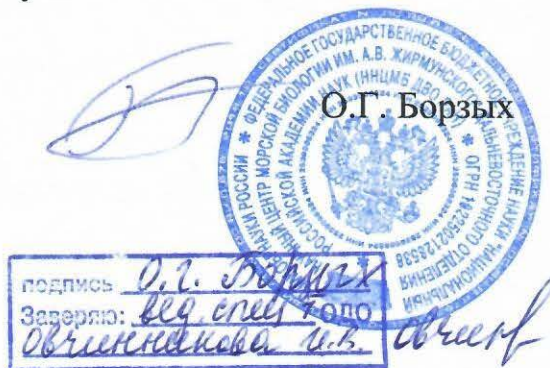 О.Г. Борзых
МИНИСТЕРСТВО НАУКИ РОССИИ * ФЕДЕРАЛЬНОЕ ГОСУДАРСТВЕННОЕ БЮДЖЕТНОЕ УЧРЕЖДЕНИЕ НАУКИ "НАЦИОНАЛЬНЫЙ
НЫЙ ЦЕНТР МОРСКОЙ БИОЛОГИИ ИМ. А.В. ЖИРМУНСКОГО" ДАЛЬНЕВОСТОЧНОГО ОТДЕЛЕНИЯ
РОССИЙСКОЙ АКАДЕМИИ НАУК (ННЦМБ ДВО РАН) * ОГРН
подпись О.Г. Борзых
Заверяю: вед. спец ОПО
Овчинникова И.В.